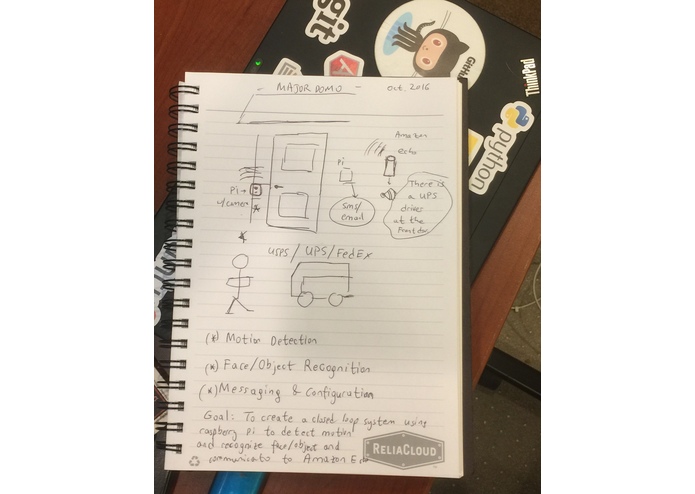 git
GitHub
ThinkPad
python
MAJOR DOMO
Oct. 2016
Amazon
echo
Pi
Pi
w/camera
sms/
email
There is
a UPS
driver
at the
Front door
USPS / UPS / FedEx
(*) Motion Detection
(*) Face/Object Recognition
(*) Messaging & Configuration
Goal: To create a closed loop system using
raspberry pi to detect motion
and recognize face/object and
communicate to Amazon Echo
RELIACLOUD